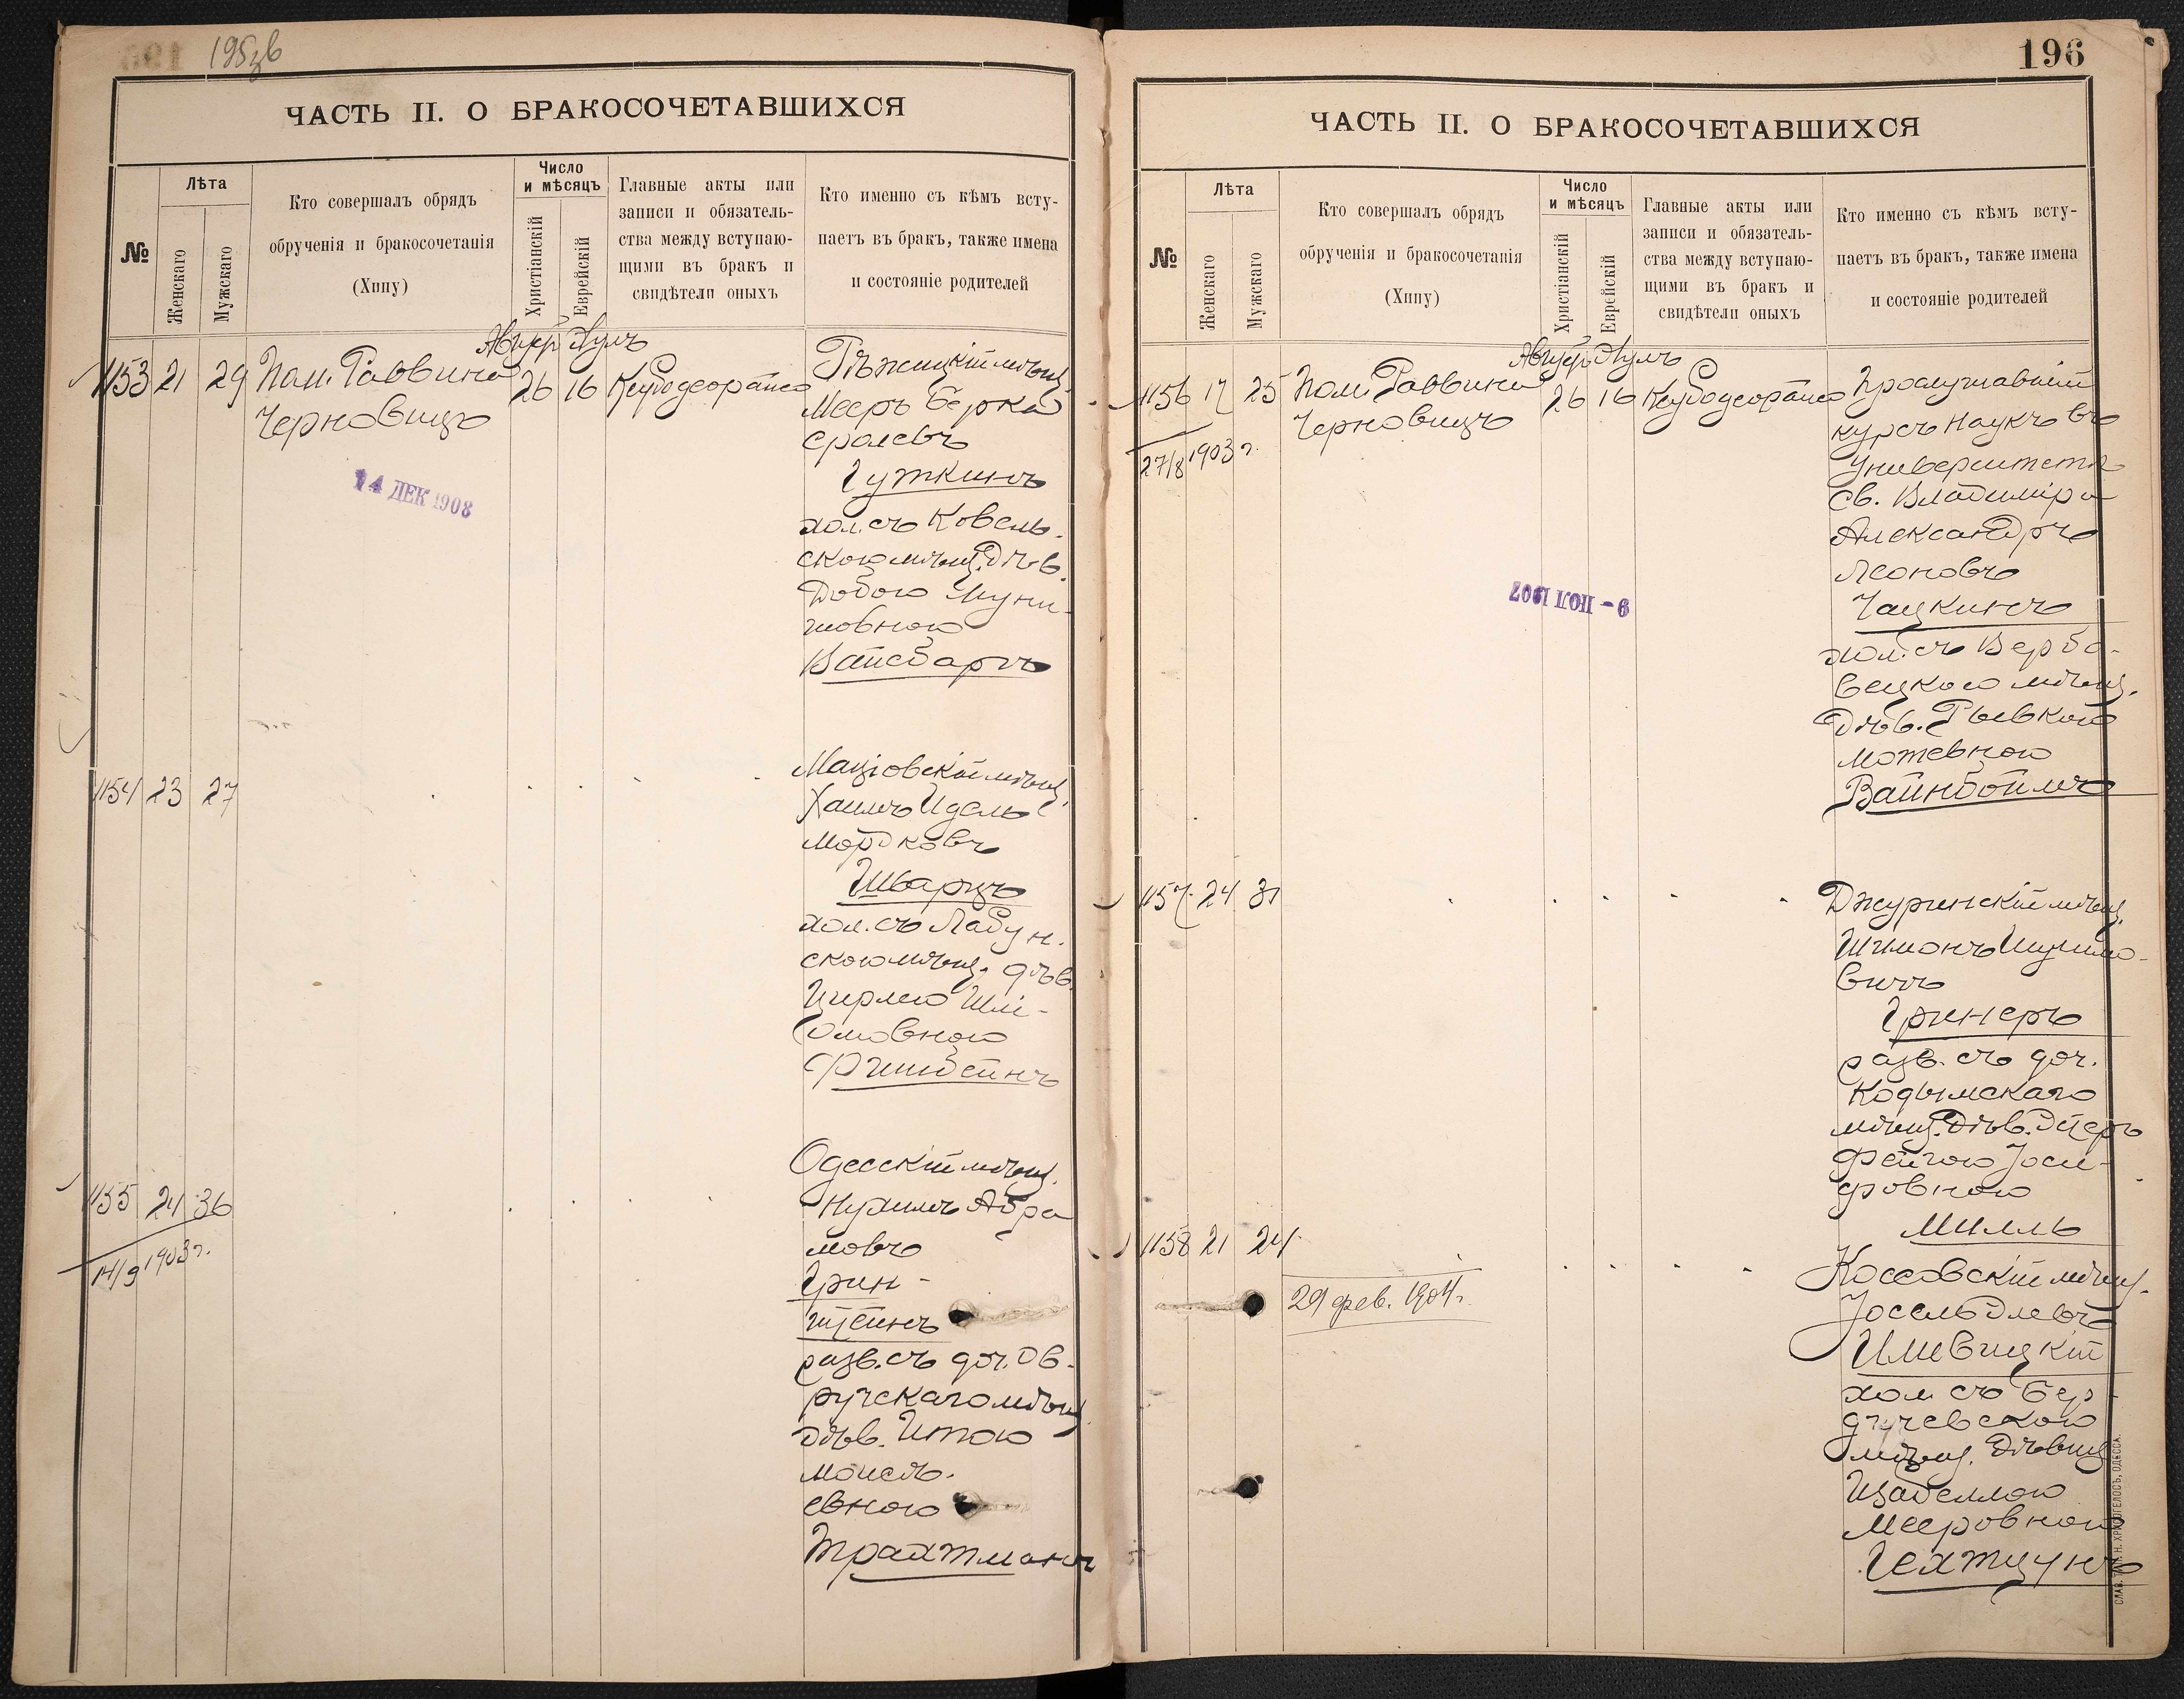 195зв
ЧАСТЬ II. О БРАКОСОЧЕТАВШИХСЯ
№
Лѣта
Женскаго
Мужскаго
Кто совершалъ обрядъ
обрученія и бракосочетанія
(Хипу)
Число
и мѣсяцъ
Христіанскій
Еврейскій
Главные акты или
записи и обязатель-
ства между вступаю-
щими въ бракъ и
свидѣтели оныхъ
Кто именно съ кѣмъ всту-
паетъ въ бракъ, также имена
и состояніе родителей
1153 21 29
Пом. Раввина
Черновицъ
26 16
14 ДЕК 1908
Рѣжицкій мѣщ.
Мееръ Берка
Сролевъ
Гуткинъ
хол. съ Ковель-
скою мѣщ. дѣв.
Добою Шуни-
мовною
Вайсбаргъ
1154 23 27
Маціовскій мѣщ.
Хаимъ Идель
Мордковъ
Шварцъ
хол. съ Лабун-
скою мѣщ. дѣв.
Цирлею Шлі-
омовною
1155 24 36
14/9 1903 г.
Одесскій мѣщ.
Нухимъ Абра
мовъ
Грин-
штейнъ
разв. съ доч. Ов-
ручскаго мѣщ.
дѣв. Итою
Моисе-
евною
Трахтманъ
196
ЧАСТЬ II. О БРАКОСОЧЕТАВШИХСЯ
№
Лѣта
Женскаго
Мужскаго
Кто совершалъ обрядъ
обрученія и бракосочетанія
(Хипу)
Число
и мѣсяцъ
Христіанскій
Еврейскій
Главные акты или
записи и обязатель-
ства между вступаю-
щими въ бракъ и
свидѣтели оныхъ
Кто именно съ кѣмъ всту-
паетъ въ бракъ, также имена
и состояніе родителей
1156 17 25
27/8 1903 г.
Пом. Раввина
Черновицъ
26 16
9 - ІЮЛ 1907
Прослушавшій
курсъ наукъ въ
Университетѣ
Св. Владиміра
Александръ
Леоновъ
Чацкинъ
хол. съ Вербо-
вецкою мѣщ.
дѣв. Рывкою
Мотевною
Вайнбоймъ
1157 24 31
Джуринскій мѣщ.
Шимонъ Шулимо-
вичъ
Гринеръ
разв. съ доч.
Кодымскаго
мѣщ. дѣв. Эстеръ
Фейгою Іоси-
фовною
Милль
1158 21 24
29 фев. 1904 г.
Коссовскій мѣщ.
Іосель Элевъ
хол. съ Бер-
дичевскою
мѣщ. Дѣвиц.
Изабеллою
Мееровною
Гехтцунъ
СЛАВ. ТИП. Н. ХРИСОГЕЛОСЪ, ОДЕССА.